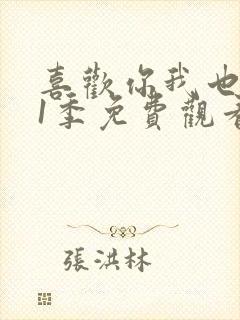 喜歡你我也
1季免費觀看
張洪林